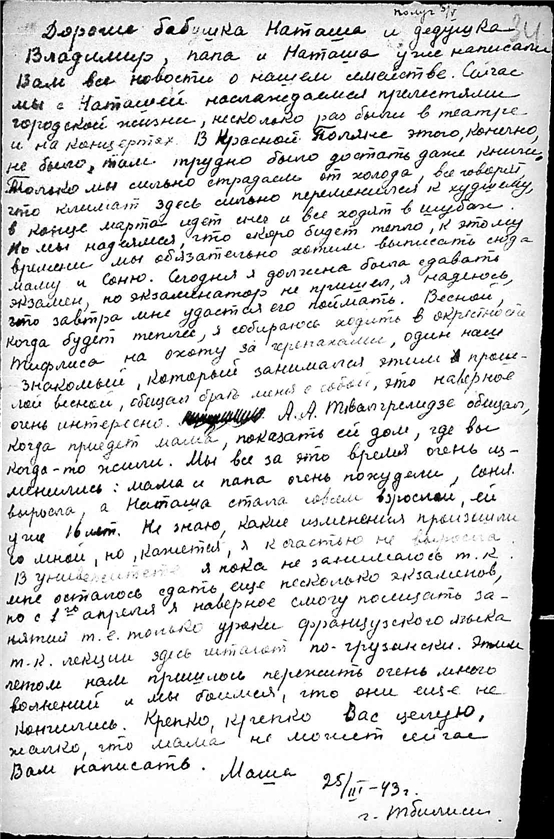 получ 5/V
34
Дорогие бабушка Наташа и дедушка
Владимир, папа и Наташа уже написали
Вам все новости о нашем семействе. Сейчас
мы с Наташей наслаждаемся прелестями
городской жизни, несколько раз были в театре
и на концертах. В Красной Поляне этого, конечно,
не было, там трудно было достать даже книги.
Только мы сильно страдаем от холода, все говорят,
что климат здесь сильно переменился к худшему,
в конце марта идет снег и все ходят в шубах.
Но мы надеемся, что скоро будет тепло, к этому
времени мы обязательно хотим выписать сюда
маму и Соню. Сегодня я должна была сдавать
экзамен, но экзаменатор не пришел, я надеюсь,
что завтра мне удастся его поймать. Весной,
когда будет теплее, я собираюсь ходить в окрестности
Тифлиса на охоту за черепахами, один наш
знакомый, который занимался этим прош-
лой весной, обещал брать меня с собой, это наверное
очень интересно. А.А. Твалгрелидзе обещал,
когда приедет мама, показать ей дом, где вы
когда-то жили. Мы все за это время очень из-
менились: мама и папа очень похудели, Соня
выросла, а Наташа стала совсем взрослой, ей
уже 16 лет. Не знаю, какие изменения произошли
со мной, но, кажется, я к счастью не выросла
В университете я пока не занимаюсь т.к.
мне осталось сдать еще несколько экзаменов,
но с 1го апреля я наверное смогу посещать за-
нятия т.е. только уроки французского языка
т.к. лекции здесь читают по-грузински. Этим
летом нам пришлось пережить очень много
волнений и мы боимся, что они еще не
кончились. Крепко, крепко Вас целую,
жалко, что мама не может сейчас
Вам написать. Маша
25/III-43г.
г. Тбилиси.